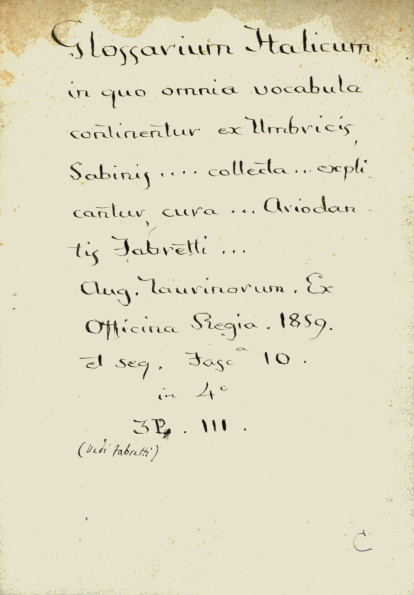 Glossarium Italicum,
in quo omnia vocabula
continentur ex Umbricis,
Sabinis .... collecta... expli
cantur, cura ... Ariodan
tis Fabretti ...
Aug. Taurinorum. Ex
Officina Regia. 1859.
et seq. Fasc.ª 10.
in 4°
III.
(Vedi Fabretti)
C